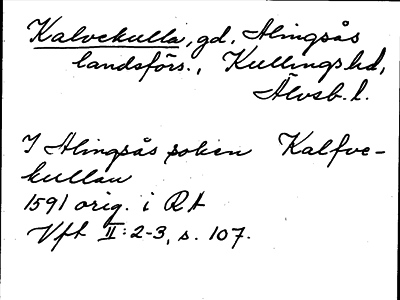 Kalvekulla, gd, Alingsås
landsförs., Kullings hd,
Älvsb. l.
I Alingsås soken Kalfve-
kullan
1591 orig. i RA
Vft II:2-3, s. 107.